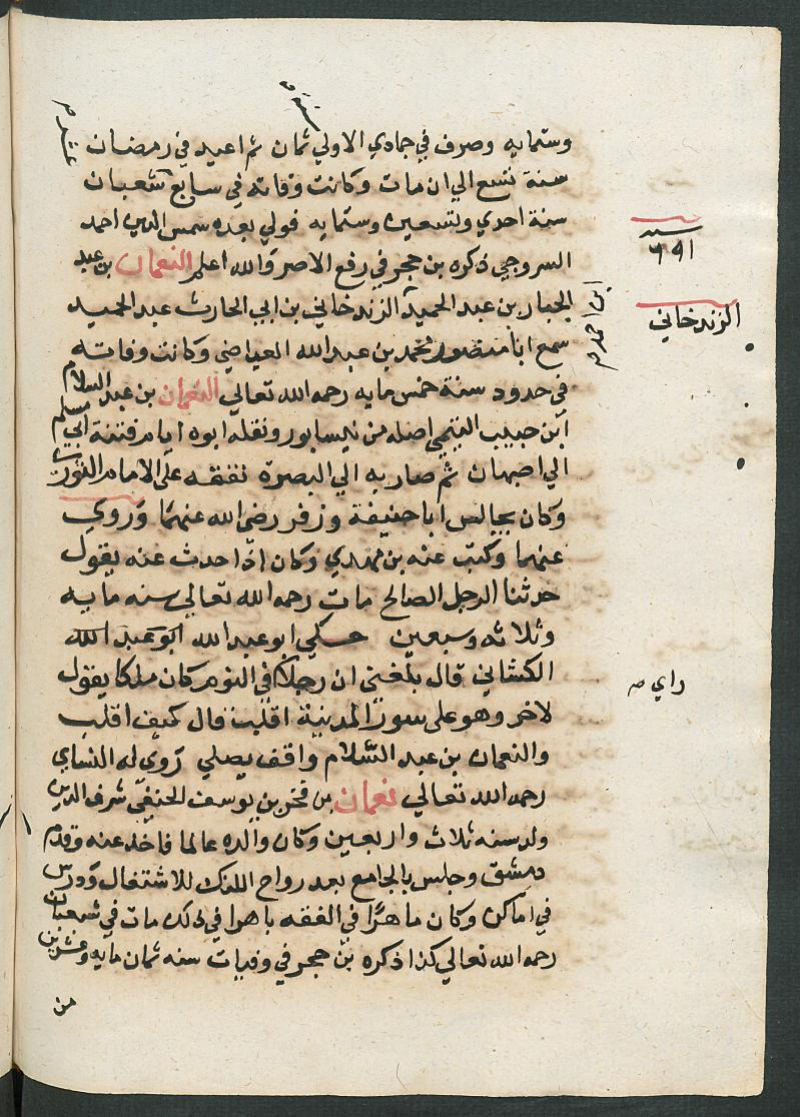 وستمايه وصرف في جمادي الاولي ثمان ثم اعيد في رمضان
سنة تسع الي ان مات وكانت وفاته في سابع شعبان
سنة احدي وتسعين وستمايه فولي بعده شمس الدين احمد
السروجي ذكره بن حجر في رفع الاصر والله اعلم النعمان بن عبد
الجبار بن عبد الحميد الزندخاني بن ابي الحارث عبد الحميد
سمع ابا منصور محمد بن عبد الله العياضي وكانت وفاته
في حدود سنة خمس مايه رحمه الله تعالي النعمان بن عبد السلام
ابن حبيب التيمي اصله من نيسابور ونقله ابوه ايام فتنة ابي مسلم
الي اصبهان ثم صار به الي البصرة تفقه علي الامام الثوري
وكان يجالس ابا حنيفة وزفر رضي الله عنهما وروي
عنهما وكتب عنه بن مهدي وكان اذا حدث عنه يقول
حدثنا الرجل الصالح مات رحمه الله تعالي سنه مايه
وثلاثه وسبعين حكي ابو عبد الله ابو عبد الله
الكسائي قال بلغني ان رجلا في النوم كان ملكا يقول
لاخر وهو علي سور المدينة اقلب قال كيف اقلب
والنعمان بن عبد السلام واقف يصلي روي له النسايي
رحمه الله تعالي نعمان بن فخر بن يوسف الحنفي شرف الدين
ولد سنه ثلاث واربعين وكان والده عالما فاخذ عنه وقدم
دمشق وجلس بالجامع بعد رواح اللنك للاشتغال ودرس
في اماكن وكان ماهرا في الفقه باهرا في ذلك مات في شعبان
رحمه الله تعالي كذا ذكره بن حجر في وفيات سنه ثمان مايه وعشرين
من
سنة
٦٩١
الزندخاني
ابن احمد
راي صح